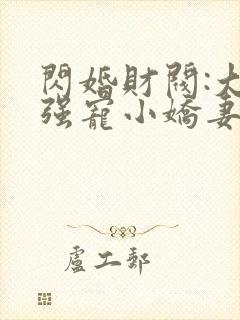 閃婚財閥:大
强寵小嬌妻
盧工郵